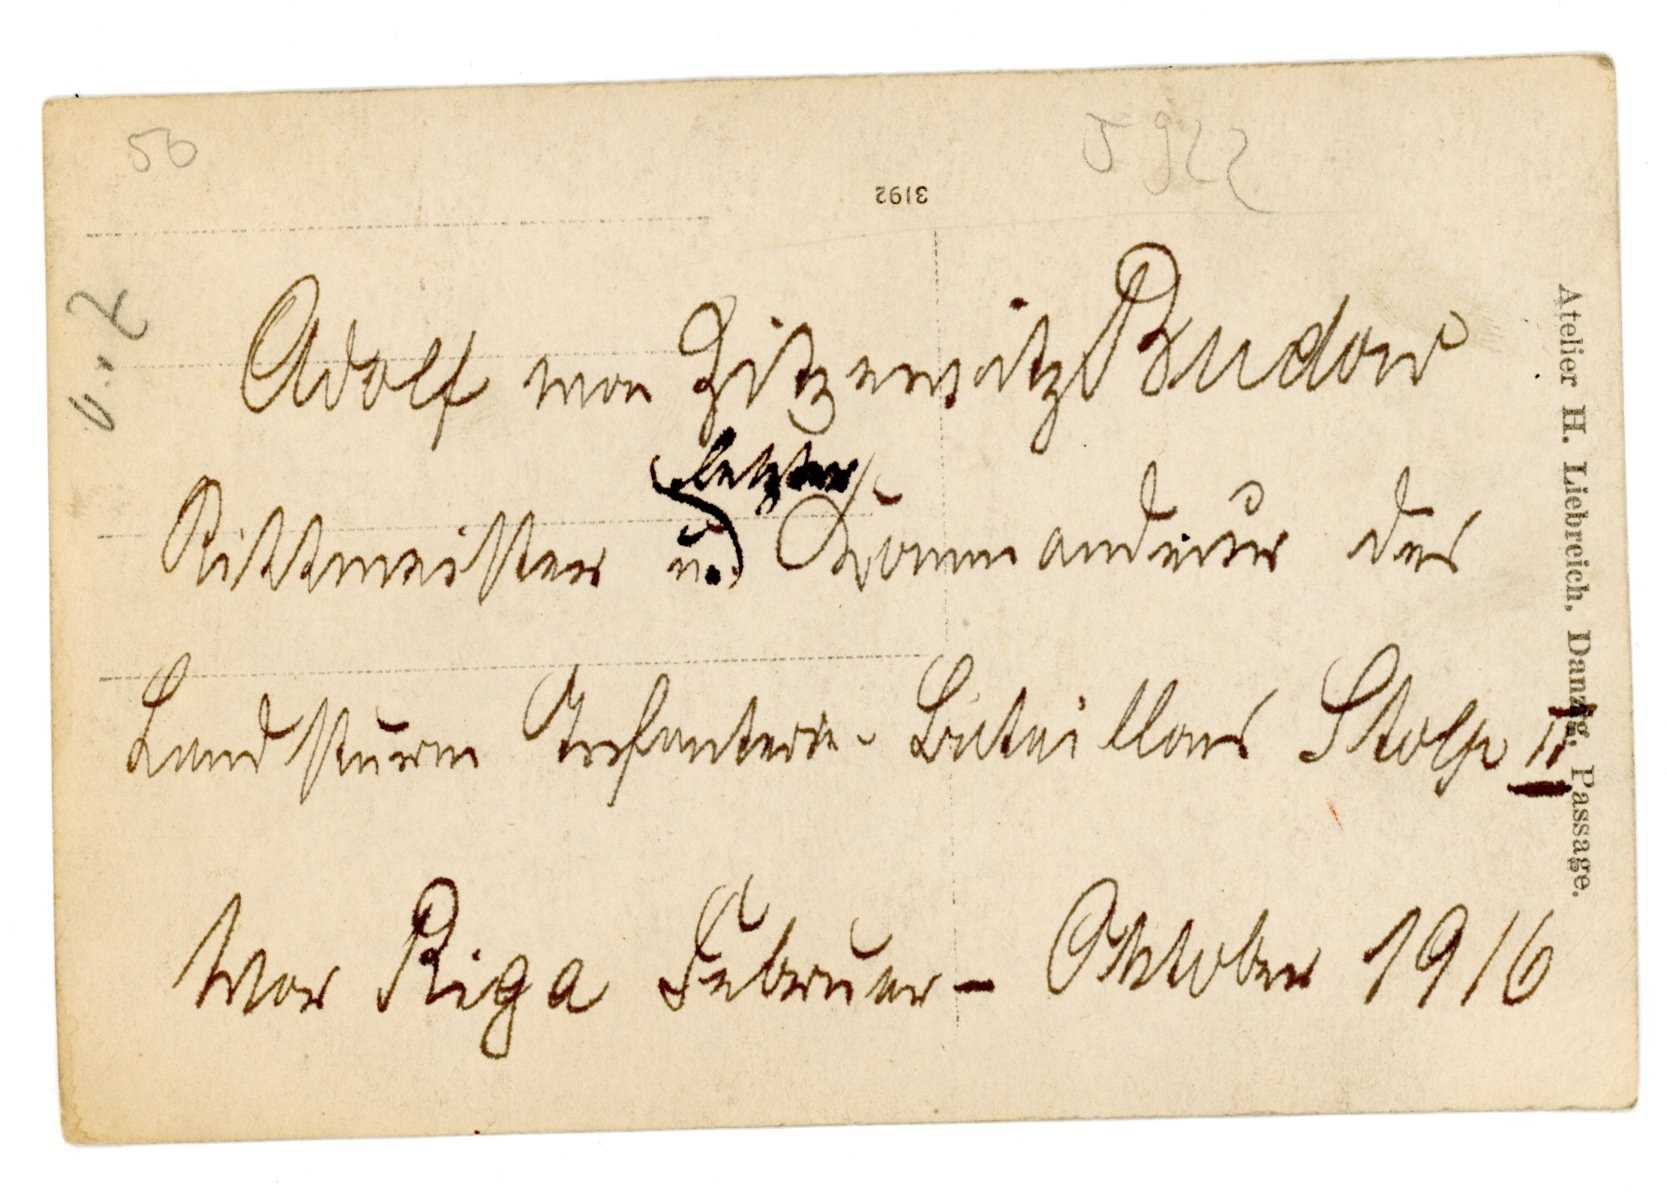 50
5922
3192
v. Z
Adolf von Zitzewitz Budow
letzter
Rittmeister u. Kommandeur des
Landsturm Infanterie-Bataillons Stolp II
Vor Riga Februar - Oktober 1916
Atelier H. Liebreich, Danzig, Passage.